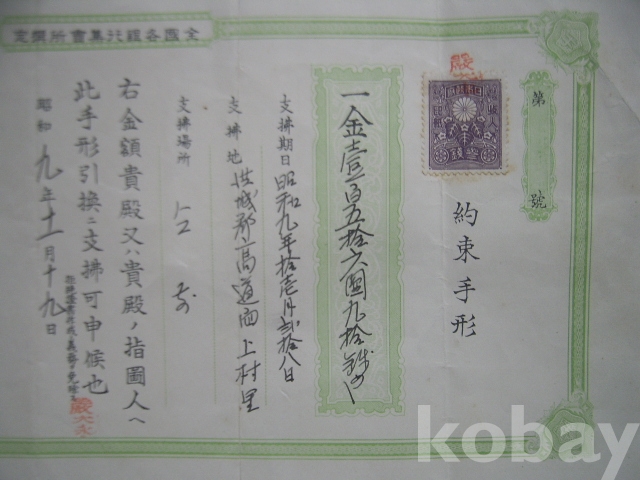 全国各銀行集會所撰定
第
號
約束手形
一金壹百五拾六圓九拾銭也
支拂期日昭和九年拾壱月貳拾八日
支拂地 洪城郡高道面上村里
支拂場所 仝所
右金額貴殿又ハ貴殿ノ指圖人ヘ
此手形引換ニ支拂可申候也
昭和九年十一月十九日
kobay